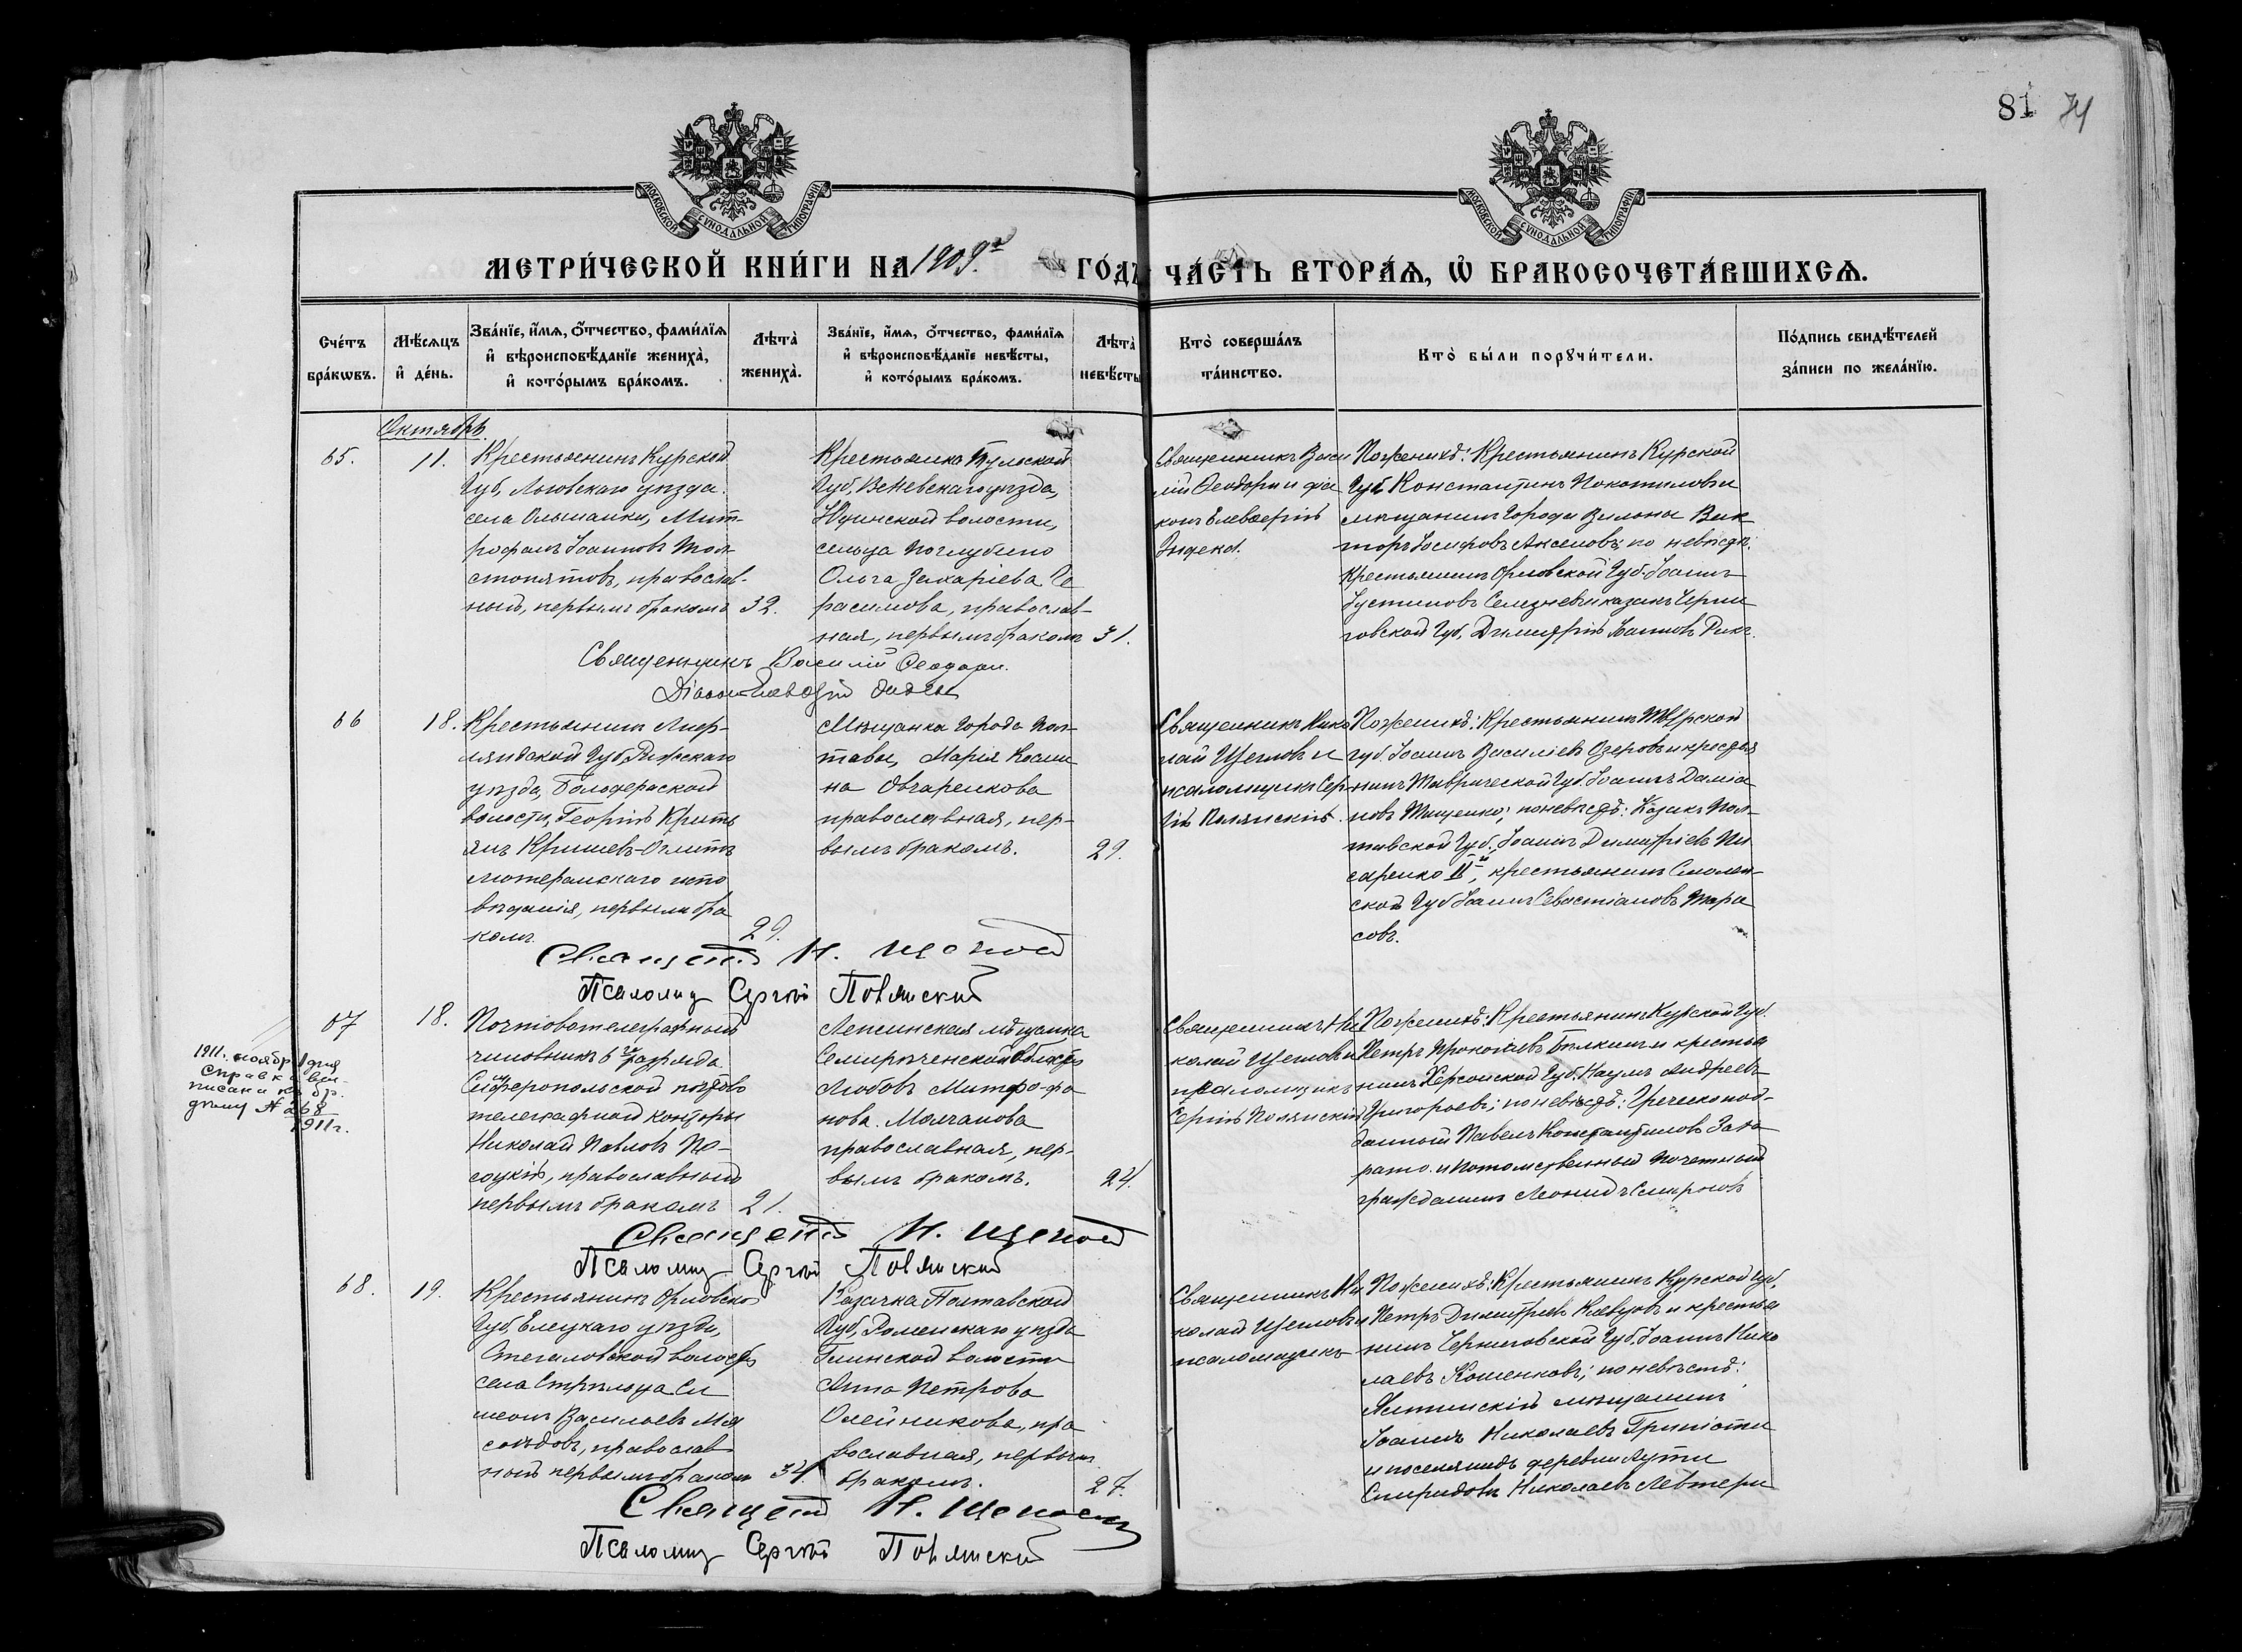 81 74
МОСКОВСКОЙ СѴНОДАЛЬНОЙ ТИПОГРАФІИ
МОСКОВСКОЙ СѴНОДАЛЬНОЙ ТИПОГРАФІИ
МЕТРИ́ЧЕСКОЙ КНИ́ГИ НА 1909 г. ГО́ДЪ ЧА́СТЬ ВТОРА́Ѧ, Ѡ҆ БРАКОСОЧЕТА́ВШИХСѦ.
Сче́тъ бра́кѡвъ.
Мѣ́сѧцъ и҆ де́нь.
Зва́нїе, и҆́мѧ, ѻ҆́тчество, фами́лїѧ и҆ вѣроисповѣ́данїе жениха̀, и҆ кото́рымъ бра́комъ.
Лѣта̀ жениха̀.
Зва́нїе, и҆́мѧ, ѻ҆́тчество, фами́лїѧ и҆ вѣроисповѣ́данїе невѣ́сты, и҆ кото́рымъ бра́комъ.
Лѣта̀ невѣ́сты
Кто̀ соверша́лъ та́инство.
Кто̀ бы́ли порꙋчи́тели.
По́дпись свидѣ́телей за́писи по жела́нїю.
Октябрь.
65.
11.
Крестьянинъ Курской
Губ, Льговскаго уѣзда
села Ольшанки, Мит-
рофанъ Іоанновъ Тол-
стопятовъ, православ-
ный, первымъ бракомъ
32.
Крестьянка Тульской
Губ, Веневскаго уѣзда,
волости,
сельца
Ольга Захаріева Ге
расимова, православ-
ная, первымъ бракомъ
31.
Священникъ Васи
лій Ѳеодори и діа
конъ Елевферій
Священникъ Василій Ѳеодори.
По женихѣ: Крестьянинъ Курской
Губ. Константинъ Покотиловъ и
мѣщанинъ города Вильны Вик
торъ Іосифовъ Акселовъ; по невѣстѣ:
Крестьянинъ Орловской Губ. Іоаннъ
Іустиновъ Селезневъ и казакъ Черни
говской Губ. Димитрій Іоанновъ
66
18.
Крестьянинъ Лиф-
ляндской Губ, Рижскаго
уѣзда,
волости, Георгій
лютеранскаго испо
вѣданія, первымъ бра
комъ.
29.
Мѣщанка города Пол-
тавы, Марія Косми
на Овчаренкова
православная, пер-
вымъ бракомъ.
29.
Священникъ Нико
лай Щегловъ и
псаломщикъ Сер-
гій Полянскій.
По женихѣ: Крестьянинъ Тверской
губ. Іоаннъ Василіевъ Озеровъ и крестья
нинъ Таврической Губ. Іоаннъ Даміа
новъ Тищенко; по невѣстѣ: Казакъ Пол-
тавской Губ. Іоаннъ Димитріевъ Пи
саренко II й, крестьянинъ Смолен-
ской Губ Іоаннъ Севастіановъ Тара
совъ.
Священ. Н. Щеглов
Псаломщ Сергій Полянскій
67
18.
1911. ноябр 1 дня
справка вы-
писана къ бр.
дѣлу № 268
1911 г.
Почтовотелеграфный
чиновникъ 6 го разряда
Симферопольской почтово
телеграфной конторы
Николай Павловъ Пе-
соцкій, православный
первымъ бракомъ
21.
Лепсинская мѣщанка
Семирѣченской области
Любовь Митрофа
нова Молчанова
православная, пер-
вымъ бракомъ.
24.
Священникъ Ни
колай Щегловъ и
псаломщикъ
Сергій Полянскій
По женихѣ: Крестьянинъ Курской Губ.
Петръ Прокопіевъ Булкинъ и крестья
нинъ Херсонской Губ. Наумъ Андреевъ
Григорьевъ; по невѣстѣ: Греческопод-
данный Павелъ Константиновъ
и потомственный почетный
гражданинъ Леонидъ Смирновъ
Священ. Н. Щеглов
Псаломщ. Сергій Полянскій
68.
19.
Крестьянинъ Орловской
Губ, Елецкаго уѣзда,
Стегаловской волости
села Стрѣльца Си
меонъ Васильевъ Мя
соѣдовъ, православ
ный первымъ бракомъ
34
Казачка Полтавской
Губ, Роменскаго уѣзда
Глинской волости
Анна Петрова
Олейникова, пра
вославная, первымъ
бракомъ.
27.
Священникъ Ни
колай Щегловъ и
псаломщикъ
По женихѣ: Крестьянинъ Курской Губ.
Петръ Димитріевъ Клевцовъ и крестья
нинъ Черниговской Губ. Іоаннъ Нико
лаевъ Кошенковъ; по невѣстѣ:
Ялтинскій мѣщанинъ
Іоаннъ Николаевъ
и поселянинъ деревни Аутки
Спиридонъ Николаевъ Левтери
Священ Н. Щеглов
Псаломщ Сергій Полянскій